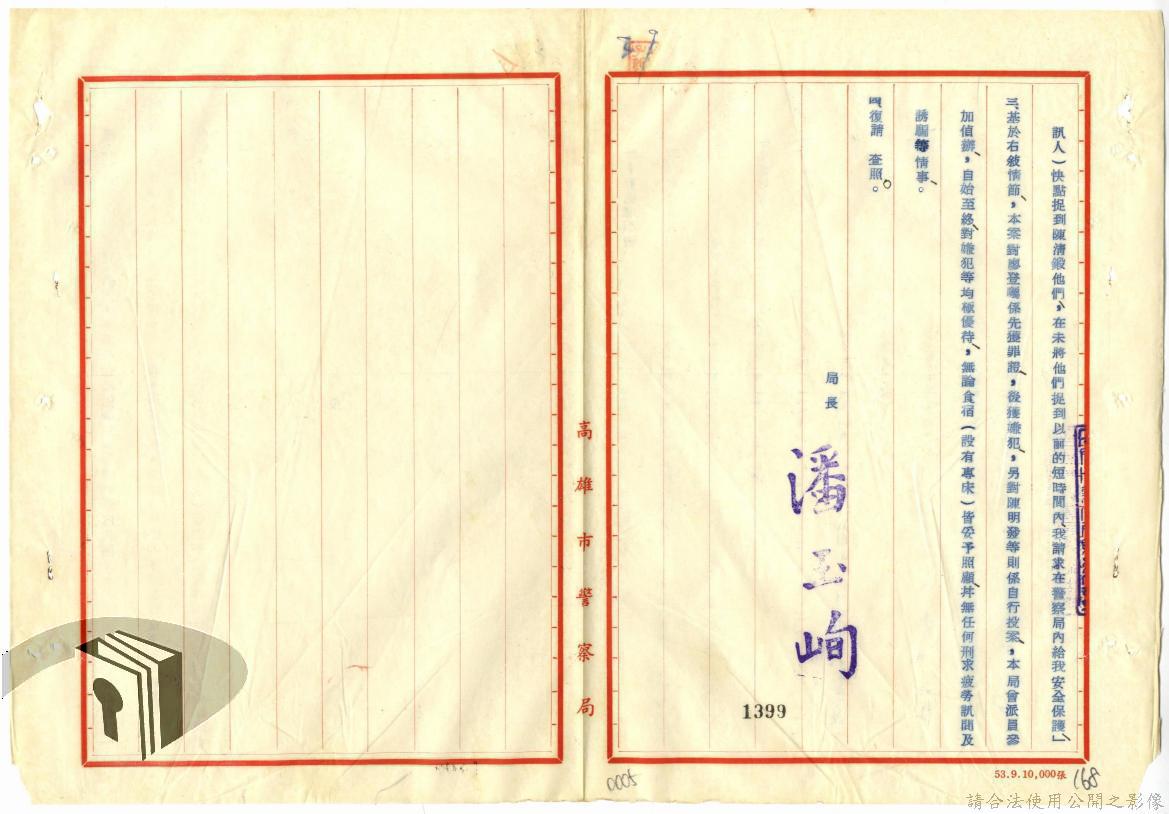 訊人)快點捉到陳清鍛他們,在未將他們捉到以前的短時間內,我請求在警察局內給我安全保護」
三、基於右敘情節,本案對廖登驪係先獲罪證,後獲嫌犯,另對陳明發等則係自行投案,本局曾派員參
加偵辦,自始至終對嫌犯等均極優待,無論食宿(設有專床)皆妥予照顧幷無任何刑求疲勞訊問及
誘騙等情事。
四、復請 查照。
局長 潘玉峋
1399
高雄市警察局
53.9.10,000張
168
0005
請合法使用公開之影像